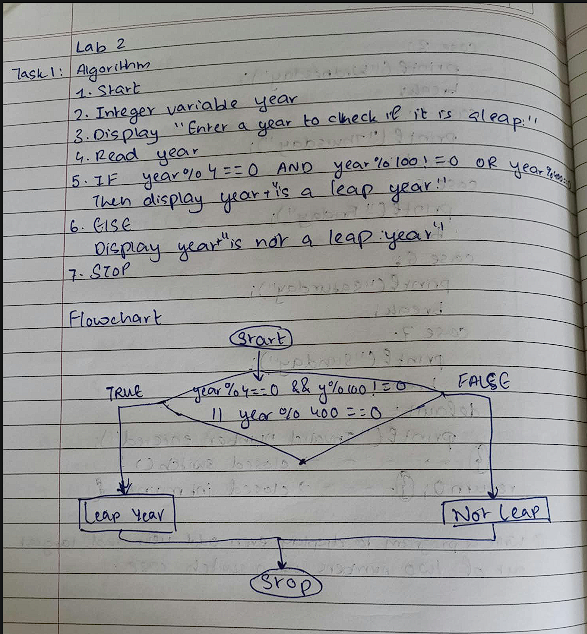 Lab 2
Task 1: Algorithm
1. Start
2. Integer variable year
3. Display "Enter a year to check if it is a leap."
4. Read year
5. IF year % 4 == 0 AND year % 100 ! = 0 OR year % 400 = 0
Then display year + "is a leap year."
6. ElSE
Display year + "is not a leap year"
7. STOP
Flowchart
Start
TRUE
year % 4 == 0 && y % 100 ! = 0
FALSE
|| year % 400 == 0
Leap Year
Not Leap
Stop